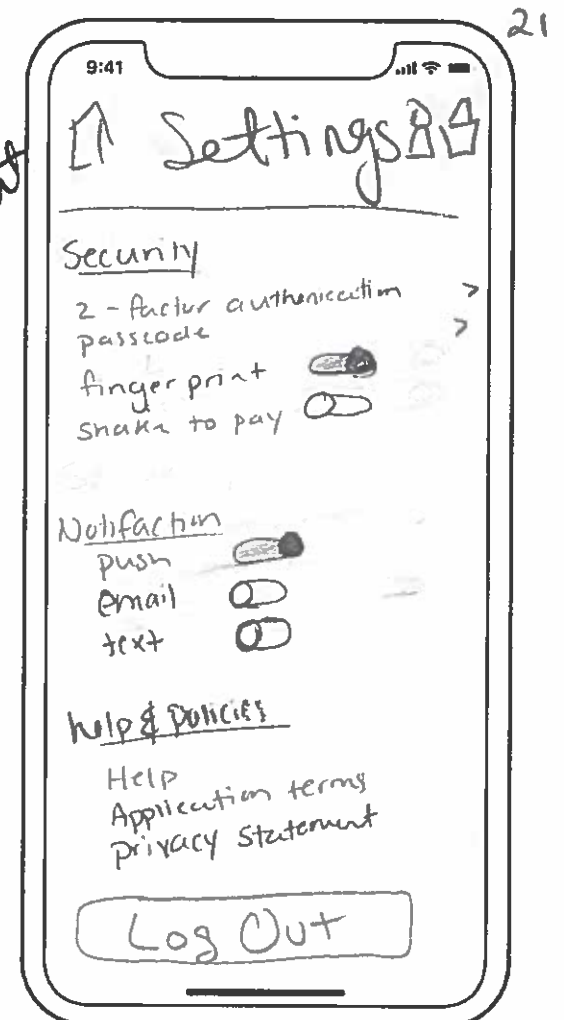 21
9:41
Settings
Security
2-factor authenication >
passcode >
finger print
shake to pay
Notifaction
push
email
text
help & Policies
Help
Application terms
privacy statement
Log Out